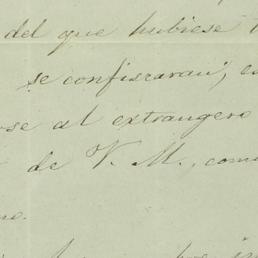 del que hubiese
se confiscaran, en
se al extrangero
de V. M., com